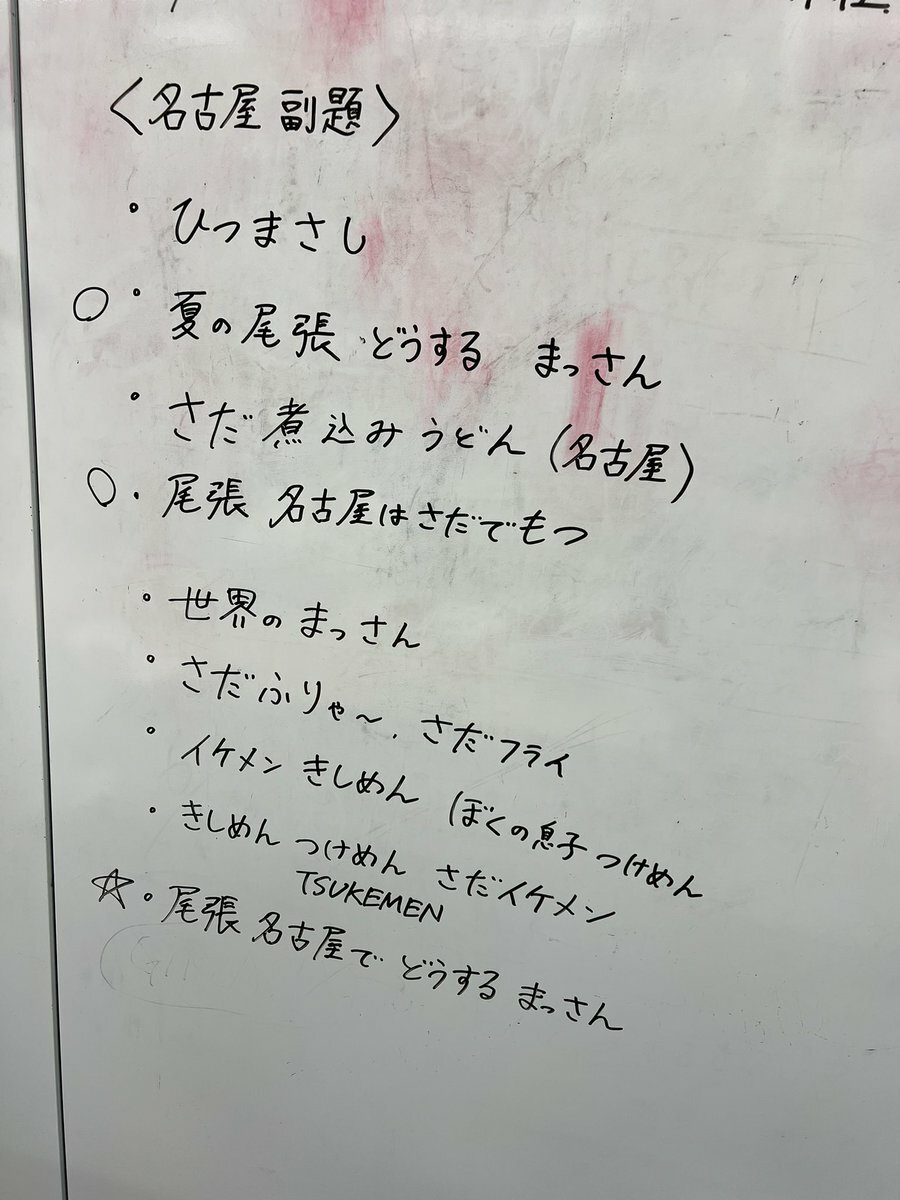 〈名古屋 副題〉
・ひつまさし
○・夏の尾張 どうする まっさん
・さだ煮込みうどん (名古屋)
○・尾張 名古屋はさだでもつ
・世界の まっさん
・さだふりゃ〜、さだフライ
・イケメン きしめん (ぼくの息子 つけめん
・きしめん つけめん さだイケメン
TSUKEMEN
☆・尾張 名古屋で どうする まっさん